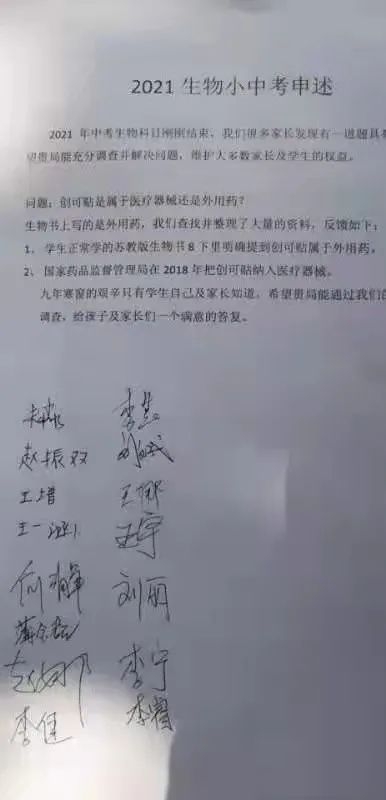 2021 生物小中考申述
2021 年中考生物科目刚刚结束，我们很多家长发现有一道题具
望贵局能充分调查并解决问题，维护大多数家长及学生的权益。
问题：创可贴是属于医疗器械还是外用药？
生物书上写的是外用药，我们查找并整理了大量的资料，反馈如下：
1、 学生正常学的苏教版生物书 8 下里明确提到创可贴属于外用药。
2、 国家药品监督管理局在 2018 年把创可贴纳入医疗器械。
九年寒窗的艰辛只有学生自己及家长知道，希望贵局能通过我们的
调查，给孩子及家长们一个满意的答复。
李慧
赵振双
王娜
王宇
刘丽
李宁
李健